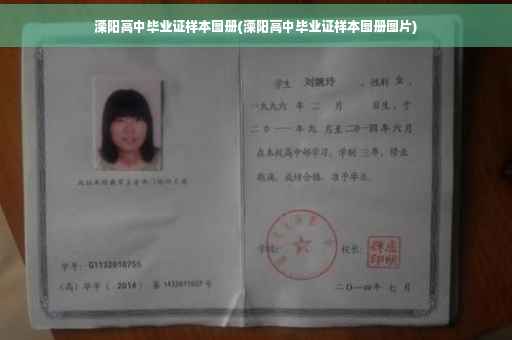 溧阳高中毕业证样本图册(溧阳高中毕业证样本图册图片)
学生 刘婉玲 ，性别 女 ，
一九九六 年 二 月 日生，于
二〇一一年 九 月至二〇一四年 六 月
在本校高中部学习，学制 三年，修业
期满，成绩合格，准予毕业。
学号：G1132010755
(高) 毕字 ( 2014 ) 第 1432011027 号
学校：
校长：
二〇一四年 七 月